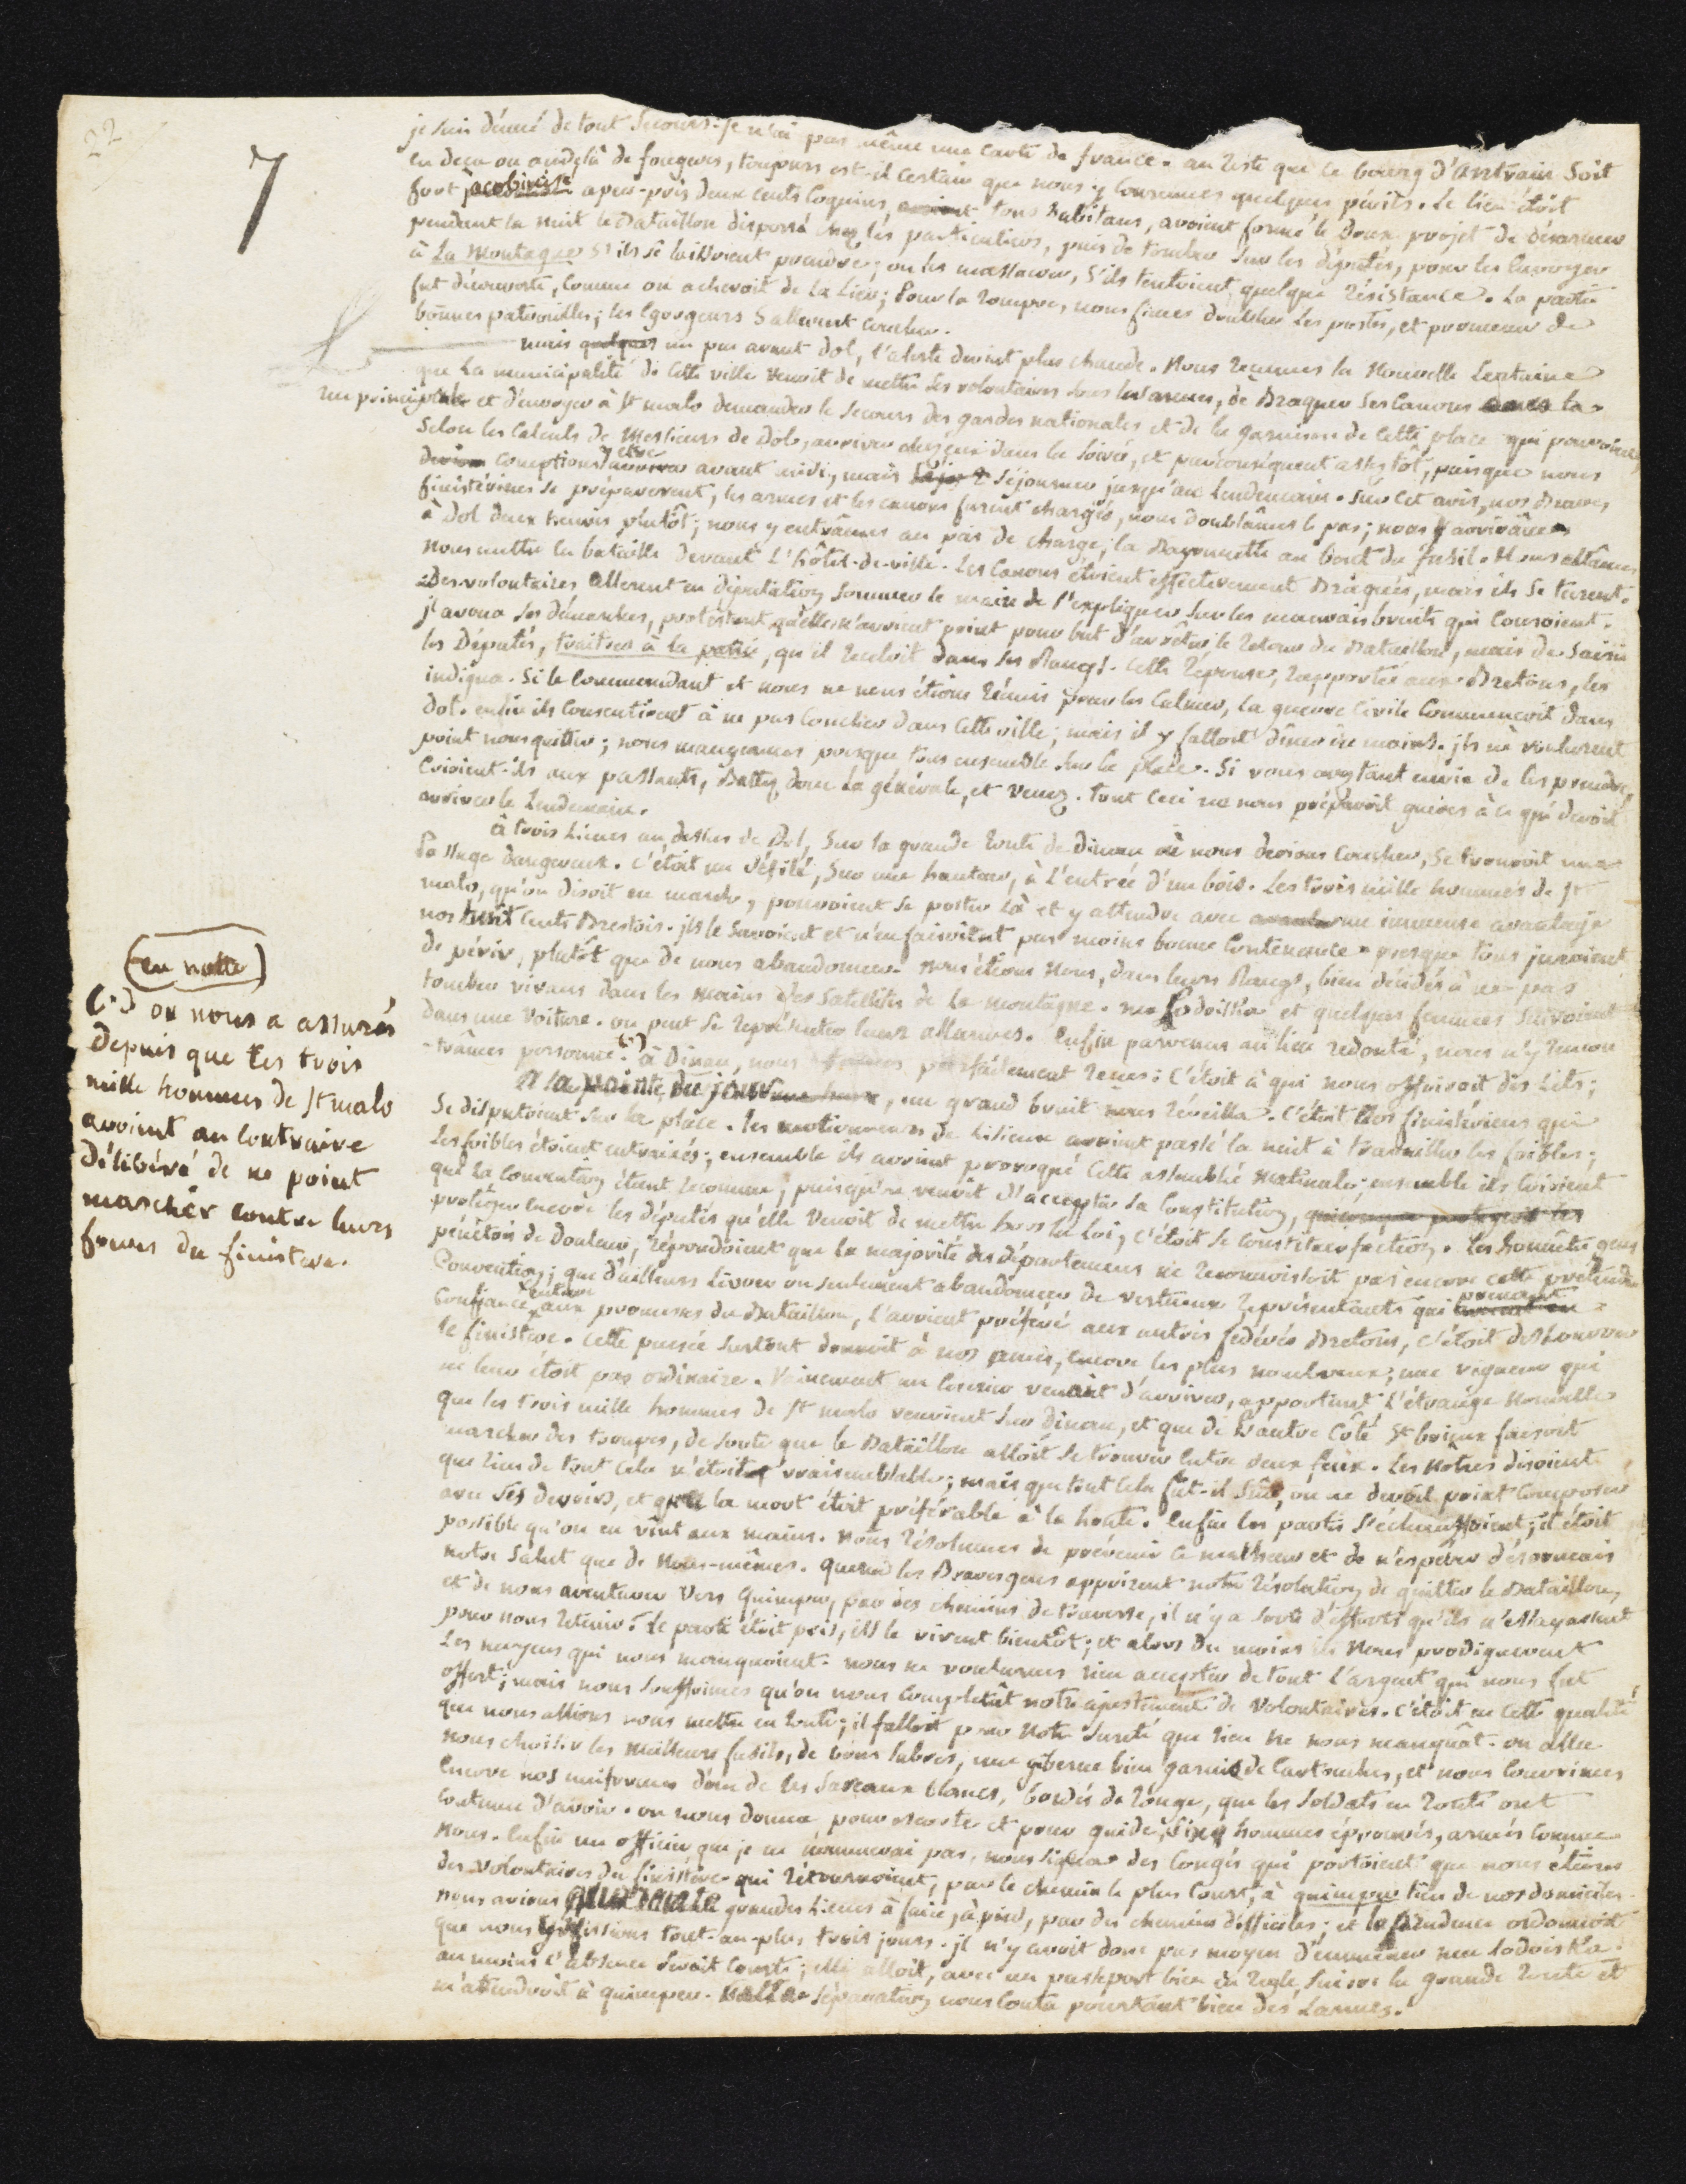 22
7
je suis dénué de tout secours. je n'ai pas même une carte de france. au reste que ce bourg d'Antrain soit
en deça ou audelà de fougeres, toujours est-il certain que nous y courumes quelques périls. Le lieu étoit
fort jacobinisé apeu-près deux cents coquins, tous habitans, avoient formé le doux projet de désarmer
pendant la nuit le Bataillon dispersé chez les particuliers, puis de tomber sur les députés, pour les envoyer
à La Montagne s'ils se laissoient prendre; ou les massacrer, s'ils tentoient quelque résistance. La partie
fut découverte, comme on achevoit de la lier; Pour la rompre, nous fimes doubler les postes, et promener de
bonnes patrouilles; les Egorgeurs s'allerent coucher.
mais quelques un peu avant dol, l'alerte devint plus chaude. Nous reçumes la Nouvelle certaine
que la municipalité de cette ville venoit de mettre ses volontaires sous les armes, de Braquer ses canons dans la
rue principale et d'envoyer à St malo demander le secours des gardes nationales et de la garnison de cette place qui pouvoient,
selon les calculs de Messieurs de Dol, arriver chez eux dans la soirée, et parconséquent assez tôt, puisque nous
devions comptions y être arriver avant midi, mais séjourner jusqu'au lendemain. Sur cet avis, nos braves
finistériens se préparerent, les armes et les canons furent chargés, nous doublâmes le pas; nous y arrivâmes
à Dol deux heures plutôt; nous y entrâmes au pas de charge, la Bayonnette au bout du fusil. Nous allâmes
nous mettre en bataille devant L'hôtel-de-ville. Les canons étoient effectivement Braqués, mais ils se turent.
Des volontaires allerent en députation sommer le maire de s'expliquer sur les mauvais bruits qui couroient.
il avoua ses démarches, protestant qu'elles n'avoient point pour but d'arrêter le retour du Bataillon, mais de saisir
les Députés, traitres à la patrie, qu'il recéloit dans ses Rangs. Cette réponse, rapportée aux Bretons, les
indigna. Si le commandant et nous ne nous étions réunis pour les calmer, la guerre civile commençoit dans
dol. enfin ils consentirent à ne pas coucher dans cette ville; mais il y falloit diner au moins. ils ne voulurent
point nous quitter; nous mangeames presque tous ensemble sur la place. Si vous avez tant envie de les prendre,
crioient-ils aux passants, Battez donc La générale, et venez. tout ceci ne nous préparoit guères à ce qui devoit
arriver le lendemain.
à trois lieues au dessus de Dol, sur la grande route de dinan où nous devions coucher, se trouvoit un
Passage dangereux. C'étoit un défilé, sur une hauteur, à l'entrée d'un bois. Les trois mille hommes de St
malo, qu'on disoit en marche, pouvoient se poster là et y attendre avec un immense avantage
nos huit cents Brestois. ils le savoient et n'en faisoient pas moins bonne contenance. presque tous juroient
de périr, plutôt que de nous abandonner. Nous étions nous, dans leurs Rangs, bien décidés à ne pas
tomber vivans dans les mains des satellites de la montagne. ma Lodoïska et quelques femmes suivoient
dans une voiture. on peut se représenter leurs allarmes. Enfin parvenus au lieu redouté, nous n'y rencon
-trâmes personne. (*) à Dinan, nous fumes parfaitement reçus: c'étoit à qui nous offriroit des Lits;
A la pointe du jour, un grand bruit nous réveilla. C'étoit nos finistériens qui
se disputoient sur la place. les motionneurs de Lisieux avoient passé la nuit à travailler les foibles;
Les foibles étoient entrainés; ensemble ils avoient provoqué cette assemblée matinale; ensemble ils crioient
que la Convention étant reconnue, puisqu'on venoit d'accepter sa Constitution,
protéger encore les députés qu'elle venoit de mettre hors la loi, c'étoit se constituer faction. Les honnêtes gens
pénétrés de Douleur, répondoient que la majorité des départemens ne reconnoissoit pas encore cette prétendue
Convention; que d'ailleurs livrer ou seulement abandonner de vertueux représentants qui prenant
confiance entiere aux promesses du Bataillon, l'avoient préféré aux autres fédérés Bretons, c'étoit deshonorer
le finistere. Cette pensée surtout donnoit à nos amis, encore les plus nombreux, une vigueur qui
ne leur étoit pas ordinaire. Vainement un courier venoit d'arriver, apportant L'étrange Nouvelle
que les trois mille hommes de St malo venoient sur Dinan, et que de L'autre Côté St brieux faisoit
marcher des troupes, de sorte que le Bataillon alloit se trouver entre deux feux. Les Nôtres disoient
que rien de tout cela n'étoit vraisemblable; mais que tout cela fut-il sûr, on ne devoit point composer
avec ses devoirs, et que la mort étoit préférable à la honte. Enfin les partis s'échauffoient; il étoit
possible qu'on en vint aux mains. Nous résolumes de prévenir ce malheur et de n'espérer désormais
notre Salut que de Nous-mêmes. Quand les Braves gens apprirent notre résolution de quitter le Bataillon,
et de nous aventurer vers Quimper, par des chemins de traverse, il n'y a sorte d'efforts qu'ils n'essayassent
pour nous retenir. Le parti étoit pris, ils le virent bientôt; et alors du moins ils Nous prodiguerent
Les moyens qui nous manquoient. nous ne voulumes rien accepter de tout l'argent qui nous fut
offert; mais nous souffrimes qu'on nous completât notre ajustement de Volontaires. C'étoit en cette qualité
que nous allions nous mettre en route; il falloit pour Notre sureté que rien ne nous manquât. on alla
nous choisir les meilleurs fusils, de bons sabres, une giberne bien garnie de Cartouches, et nous couvrimes
Encore nos uniformes d'un de ces sareaux blancs, bordés de rouge, que les Soldats en route ont
coutume d'avoir. on nous donna pour escorte et pour guide, six hommes éprouvés, armés comme
nous. Enfin un officier que je ne nommerai pas, nous signa des congés qui portoient que nous étions
des volontaires du finistère qui retournoient, par le chemin le plus court, à quimper lieu de nos domiciles.
nous avions quarante grandes Lieues à faire, à pied, par des chemins difficiles; et la prudence ordonnoit
que nous y missions tout-au-plus trois jours. il n'y avoit donc pas moyen d'emmener ma Lodoïska.
au moins l'absence seroit courte; elle alloit, avec un passeport bien en regle, suivre la grande route et
m'attendroit à quimper. Cette séparation nous couta pourtant bien des Larmes.
(en notte)
(*) on nous a assurés
depuis que les trois
mille hommes de St malo
avoient au contraire
délibéré de ne point
marcher contre leurs
freres du finistere.